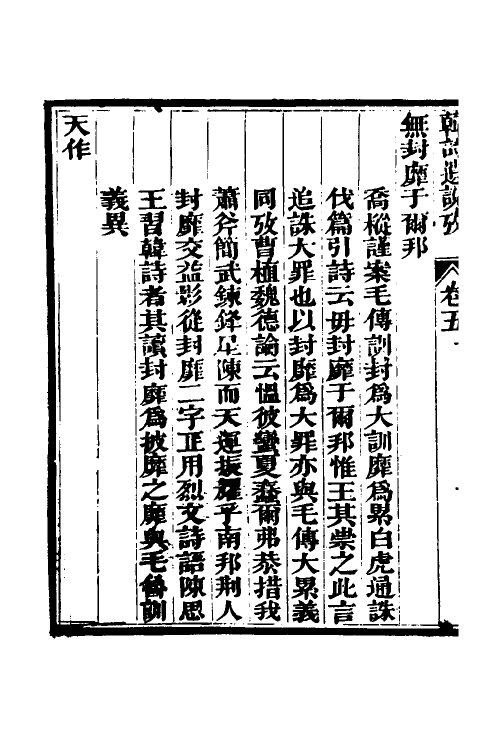 韓詩遺說攷 卷五
無封靡于爾邦
喬樅謹案毛傳訓封為大訓靡為累白虎通誅
伐篇引詩云毋封靡于爾邦惟王其崇之此言
追誅大罪也以封靡為大罪亦與毛傳大累義
同攷曹植魏德論云愠彼蠻夏蠢爾弗恭措我
蕭斧簡武鍊鋒星陳而天運振耀乎南邦荆人
封靡交益影從封靡二字正用烈文詩語陳思
王習韓詩者其讀封靡為披靡之靡與毛魯訓
義異
天作